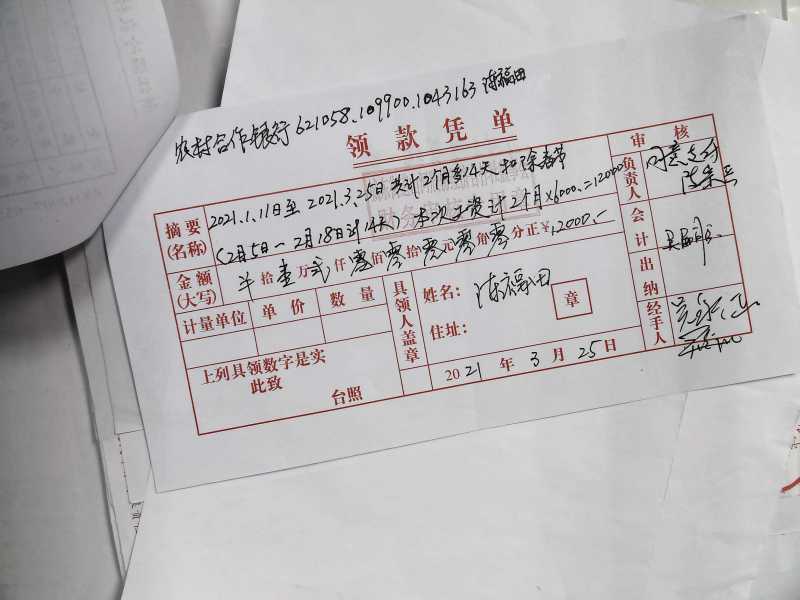 农村合作银行 621058.109900.1043163 陈福田
领款凭单
审核
摘要
(名称)
2021.1.11日至 2021.3.25日 共计2个月零14天 扣除春节
(2月5日一2月18日计14天) 本次工资计2个月×6000.=12000
负责人
同意支付
金额
(大写)
拾 壹 万 贰 仟 零 佰 零 拾 零 元 零 角 零 分正 ¥ 12000.-
会计
计量单位 单价 数量
具领人盖章
姓名: 陈福田
章
住址:
出纳
经手人
上列具领数字是实
此致
台照
2021 年 3 月 25 日